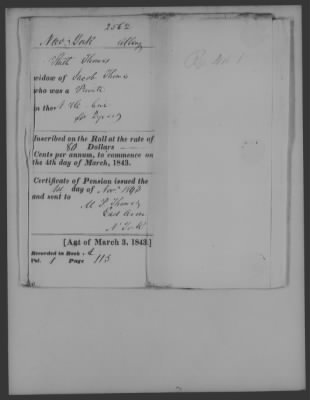 2562
New York Albany
Ruth Thomas
widow of Jacob Thomas
who was a Private
in the N H Line
Inscribed on the Roll at the rate of
80 Dollars
Cents per annum, to commence on
the 4th day of March, 1843.
Certificate of Pension issued the
1st day of Nov. 1843
and sent to
M P Thomas
East
N York
[Act of March 3, 1843.]
Recorded in Book
Vol. 1 Page 113